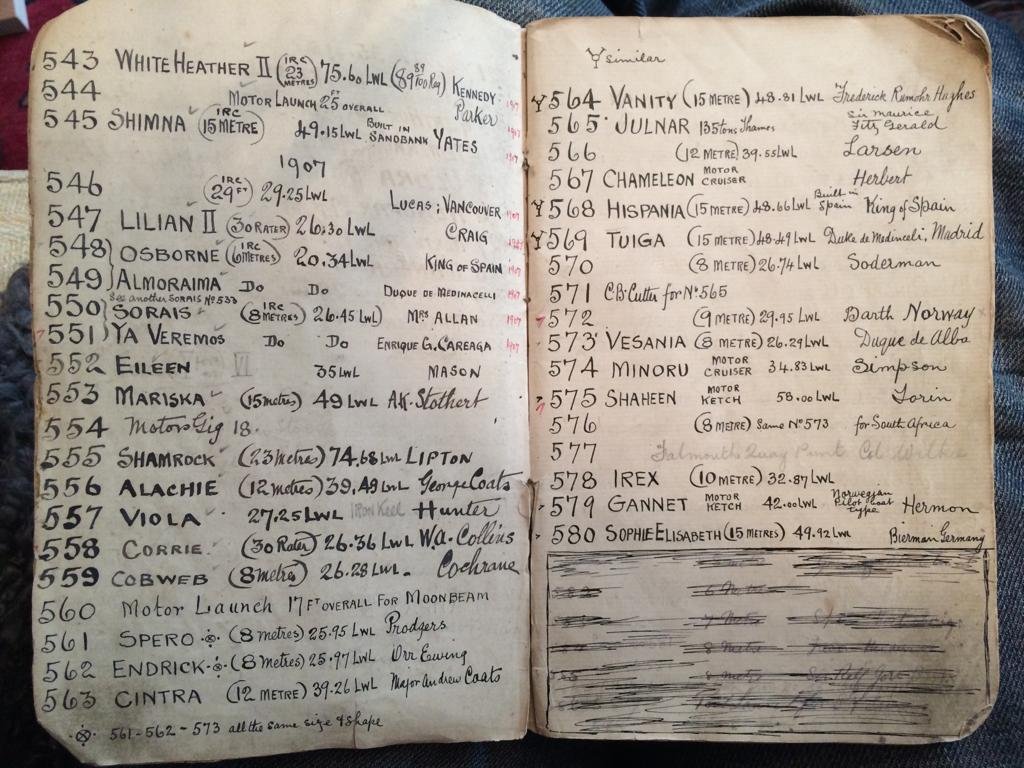 543 WHITE HEATHER II (IRC 23 METRES) 75.60 LWL (89 89/100 Reg) KENNEDY
544 MOTOR LAUNCH 25 FT OVERALL Parker 1907
545 SHIMNA (IRC 15 METRE) 49.15 LWL BUILT IN SANDBANK YATES 1907
1907
546 (IRC 29 FT) 29.25 LWL LUCAS; VANCOUVER 1907
547 LILIAN II (30 RATER) 26.30 LWL CRAIG
548 OSBORNE (IRC 6 METRES) 20.34 LWL KING OF SPAIN 1907
549 ALMORAIMA Do Do DUQUE DE MEDINACELLI 1907
See another SORAIS No 533
550 SORAIS (IRC 8 METRES) 26.45 LWL) MRS ALLAN 1907
551 YA VEREMOS Do Do ENRIQUE G. CAREAGA 1907
552 EILEEN VI 35 LWL MASON
553 MARISKA (15 metres) 49 LWL A.K. Stothert
554 Motor Gig 18.
555 SHAMROCK (23 metres) 74.68 LWL LIPTON
556 ALACHIE (12 metres) 39.49 LWL George Coats
557 VIOLA 27.25 LWL IRON Keel Hunter
558 CORRIE (30 Rater) 26.36 LWL W.A. Collins
559 COBWEB (8 metres) 26.28 LWL. Cochrane
560 Motor Launch 17 FT OVERALL FOR MOONBEAM
561 SPERO (8 metres) 25.95 LWL Prodgers
562 ENDRICK (8 Metres) 25.97 LWL Orr Ewing
563 CINTRA (12 METRE) 39.26 LWL Major Andrew Coats
561-562-573 all the same size & shape
Y similar
Y 564 VANITY (15 METRE) 48.81 LWL Frederick Rumohr Hughes
565 JULNAR 135 tons Thames Sir Maurice Fitz Gerald
566 (12 METRE) 39.55 LWL Larsen
567 CHAMELEON MOTOR CRUISER Herbert
Y 568 HISPANIA (15 METRE) 48.66 LWL Built in Spain King of Spain
Y 569 TUIGA (15 METRE) 48.49 LWL Duke de Medinceli, Madrid
570 (8 METRE) 26.74 LWL Soderman
571 CB Cutter for No 565
572 (9 METRE) 29.95 LWL Barth Norway
573 VESANIA (8 METRE) 26.29 LWL Duque de Alba
574 MINORU MOTOR CRUISER 34.83 LWL Simpson
575 SHAHEEN MOTOR KETCH 58.00 LWL Lorin
576 (8 METRE) Same No 573 for South Africa
577 Falmouth Quay Punt Col Wilkie
578 IREX (10 METRE) 32.87 LWL
579 GANNET MOTOR KETCH 42.00 LWL Norwegian Pilot boat type Hermon
580 SOPHIE ELISABETH (15 METRES) 49.92 LWL Bierman Germany